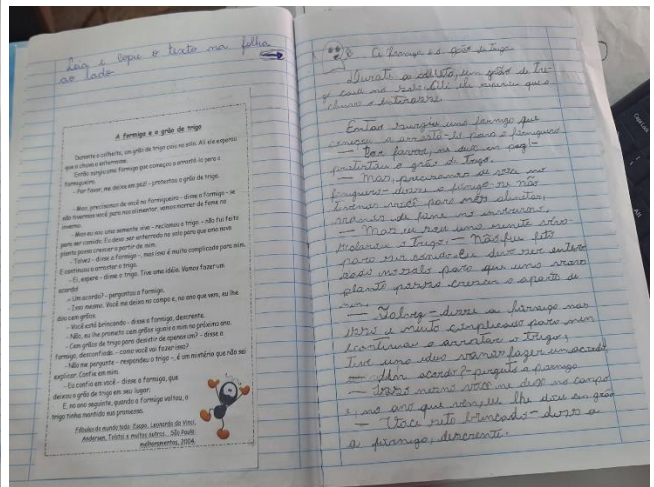 Leia e copie o texto na folha
ao lado
A formiga e o grão de trigo
Durante a colheita, um grão de trigo caiu no solo. Ali ele esperou
que a chuva o enterrasse.
Então surgiu uma formiga que começou a arrastá-lo para o
formigueiro.
- Por favor, me deixe em paz! - protestou o grão de trigo.
- Mas, precisamos de você no formigueiro - disse a formiga - se
não tivermos você para nos alimentar, vamos morrer de fome no
inverno.
- Mas eu sou uma semente viva - reclamou o trigo. - não fui feito
para ser comido. Eu devo ser enterrado no solo para que uma nova
planta possa crescer a partir de mim.
- Talvez - disse a formiga -, mas isso é muito complicado para mim.
E continuou a arrastar o trigo.
- Ei, espere - disse o trigo. Tive uma idéia. Vamos fazer um
acordo!
- Um acordo? - perguntou a formiga.
- Isso mesmo. Você me deixa no campo e, no ano que vem, eu lhe
dou cem grãos.
- Você está brincando - disse a formiga, descrente.
- Não, eu lhe prometo cem grãos iguais a mim no próximo ano.
- Cem grãos de trigo para desistir de apenas um? - disse a
formiga, desconfiada - como você vai fazer isso?
- Não me pergunte - respondeu o trigo -, é um mistério que não sei
explicar. Confie em mim.
- Eu confio em você - disse a formiga, que
deixou o grão de trigo em seu lugar.
E, no ano seguinte, quando a formiga voltou, o
trigo tinha mantido sua promessa.
Fábulas do mundo todo: Esopo, Leonardo da Vinci,
Andersen, Tolstoi e muitos outros... São Paulo:
melhoramentos, 2004.
a formiga e o grão de trigo
a colheita, um grão de tri-
chuva o enterrasse.
Então surgiu uma formiga que
começou a arrasta-lo para o formigueiro
- Por favor, me deixe em paz! -
o grão de trigo.
- Mas, precisamos de você no
formigueiro - disse a formiga - se não
você para nos
de fome no inverno.
- Mas eu sou uma semente viva -
o trigo. - Não fui feito
para ser comido. Eu devo ser enter
no solo para que uma nova
planta possa crescer a partir de
mim.
- Talvez - disse a formiga mas
isso é muito complicado para mim
continuou a arrastar o trigo;
Tive uma ideia vamos fazer um acordo
- Um acordo? - a formiga
- Isso mesmo você me deixa no campo
e, no ano que vem, eu lhe dou cem grão
- Você brincado - disse a
a formiga, descrente.